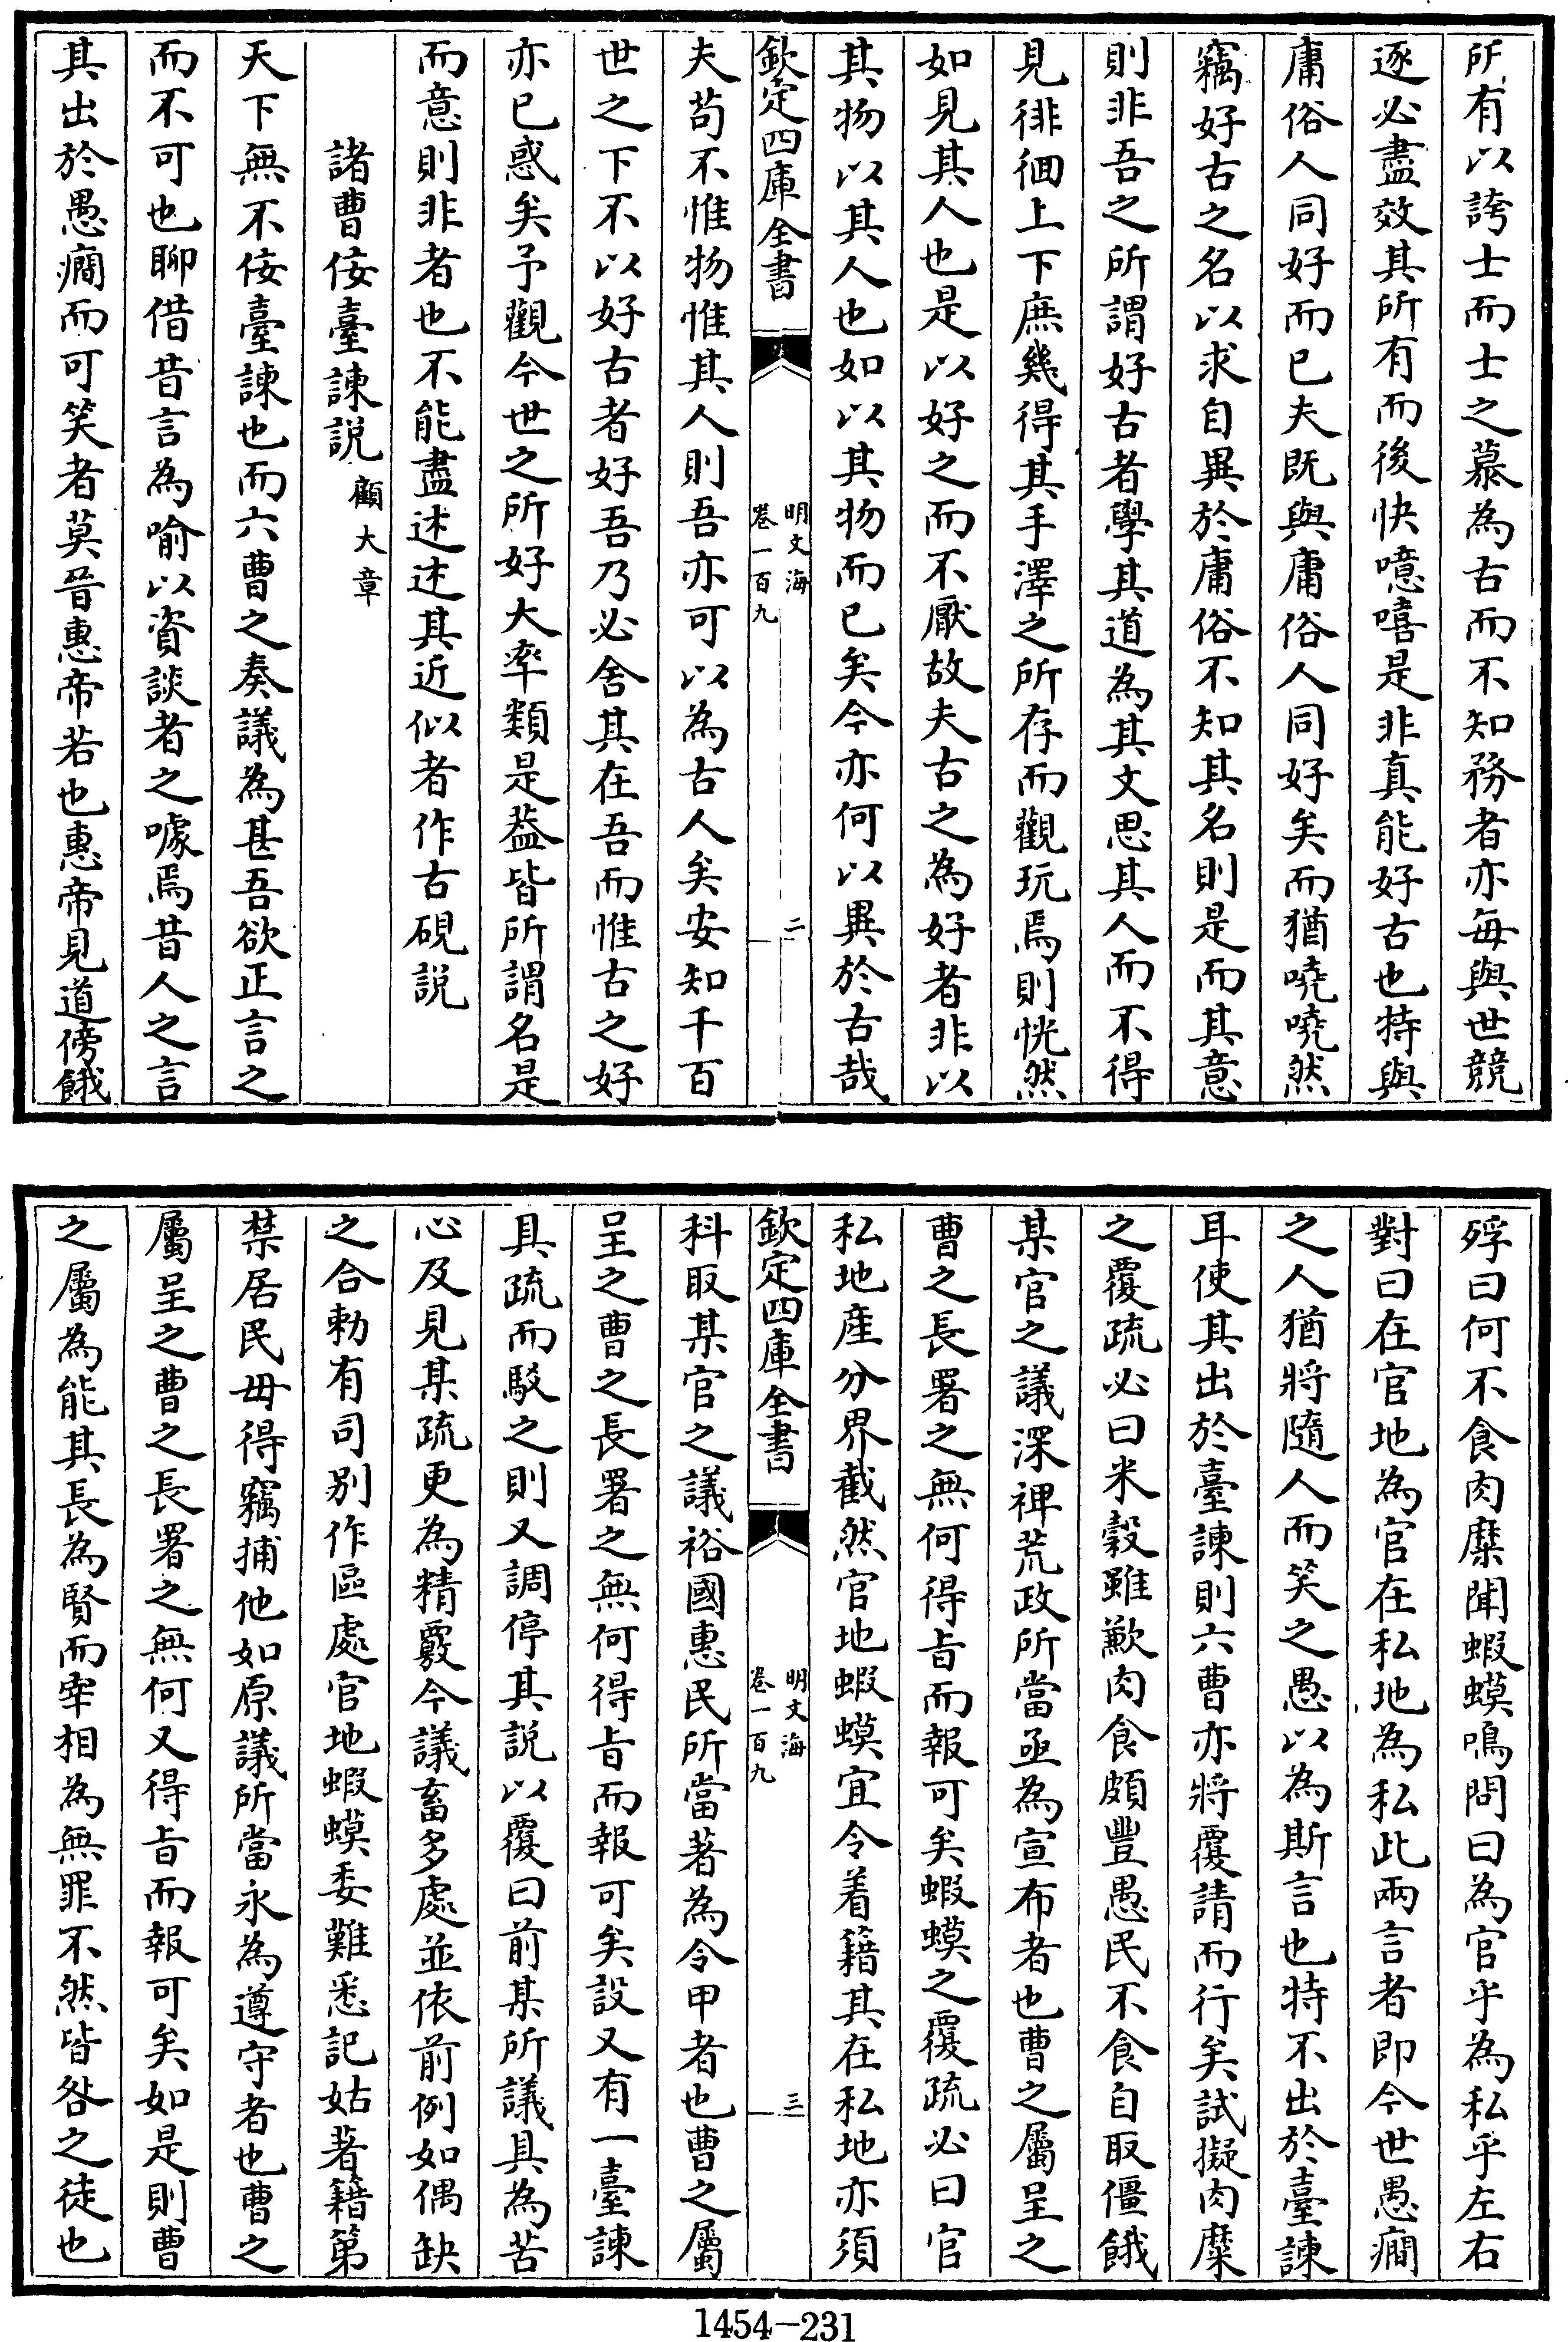 所有以誇士而士之慕為古而不知務者亦每與世競
逐必盡效其所有而後快噫嘻是非真能好古也特與
庸俗人同好而已夫既與庸俗人同好矣而猶嘵嘵然
竊好古之名以求自異於庸俗不知其名則是而其意
則非吾之所謂好古者學其道為其文思其人而不得
見徘徊上下庶幾得其手澤之所存而觀玩焉則恍然
如見其人也是以好之而不厭故夫古之為好者非以
其物以其人也如以其物而已矣今亦何以異於古哉
欽定四庫全書
明文海
卷一百九
二
夫苟不惟物惟其人則吾亦可以為古人矣安知千百
世之下不以好古者好吾乃必舍其在吾而惟古之好
亦已惑矣予觀今世之所好大率類是葢皆所謂名是
而意則非者也不能盡述述其近似者作古硯説
諸曹佞臺諫説 顧大章
天下無不佞臺諫也而六曹之奏議為甚吾欲正言之
而不可也聊借昔言為喻以資談者之噱焉昔人之言
其出於愚癎而可笑者莫晉惠帝若也惠帝見道傍餓
殍曰何不食肉糜聞蝦蟆鳴問曰為官乎為私乎左右
對曰在官地為官在私地為私此兩言者即今世愚癎
之人猶將隨人而笑之愚以為斯言也特不出於臺諫
耳使其出於臺諫則六曹亦將覆請而行矣試擬肉糜
之覆疏必曰米穀雖歉肉食頗豐愚民不食自取僵餓
某官之議深裨荒政所當亟為宣布者也曹之屬呈之
曹之長署之無何得旨而報可矣蝦蟆之覆疏必曰官
私地産分界截然官地蝦蟆宜令着籍其在私地亦須
欽定四庫全書
明文海
卷一百九
三
科取某官之議裕國惠民所當著為令甲者也曹之屬
呈之曹之長署之無何得旨而報可矣設又有一臺諫
具疏而駁之則又調停其説以覆曰前某所議具為苦
心及見某疏更為精覈今議畜多處並依前例如偶缺
之合勅有司别作區處官地蝦蟆委難悉記姑著籍第
禁居民毋得竊捕他如原議所當永為遵守者也曹之
屬呈之曹之長署之無何又得旨而報可矣如是則曹
之屬為能其長為賢而宰相為無罪不然皆咎之徒也
1454-231